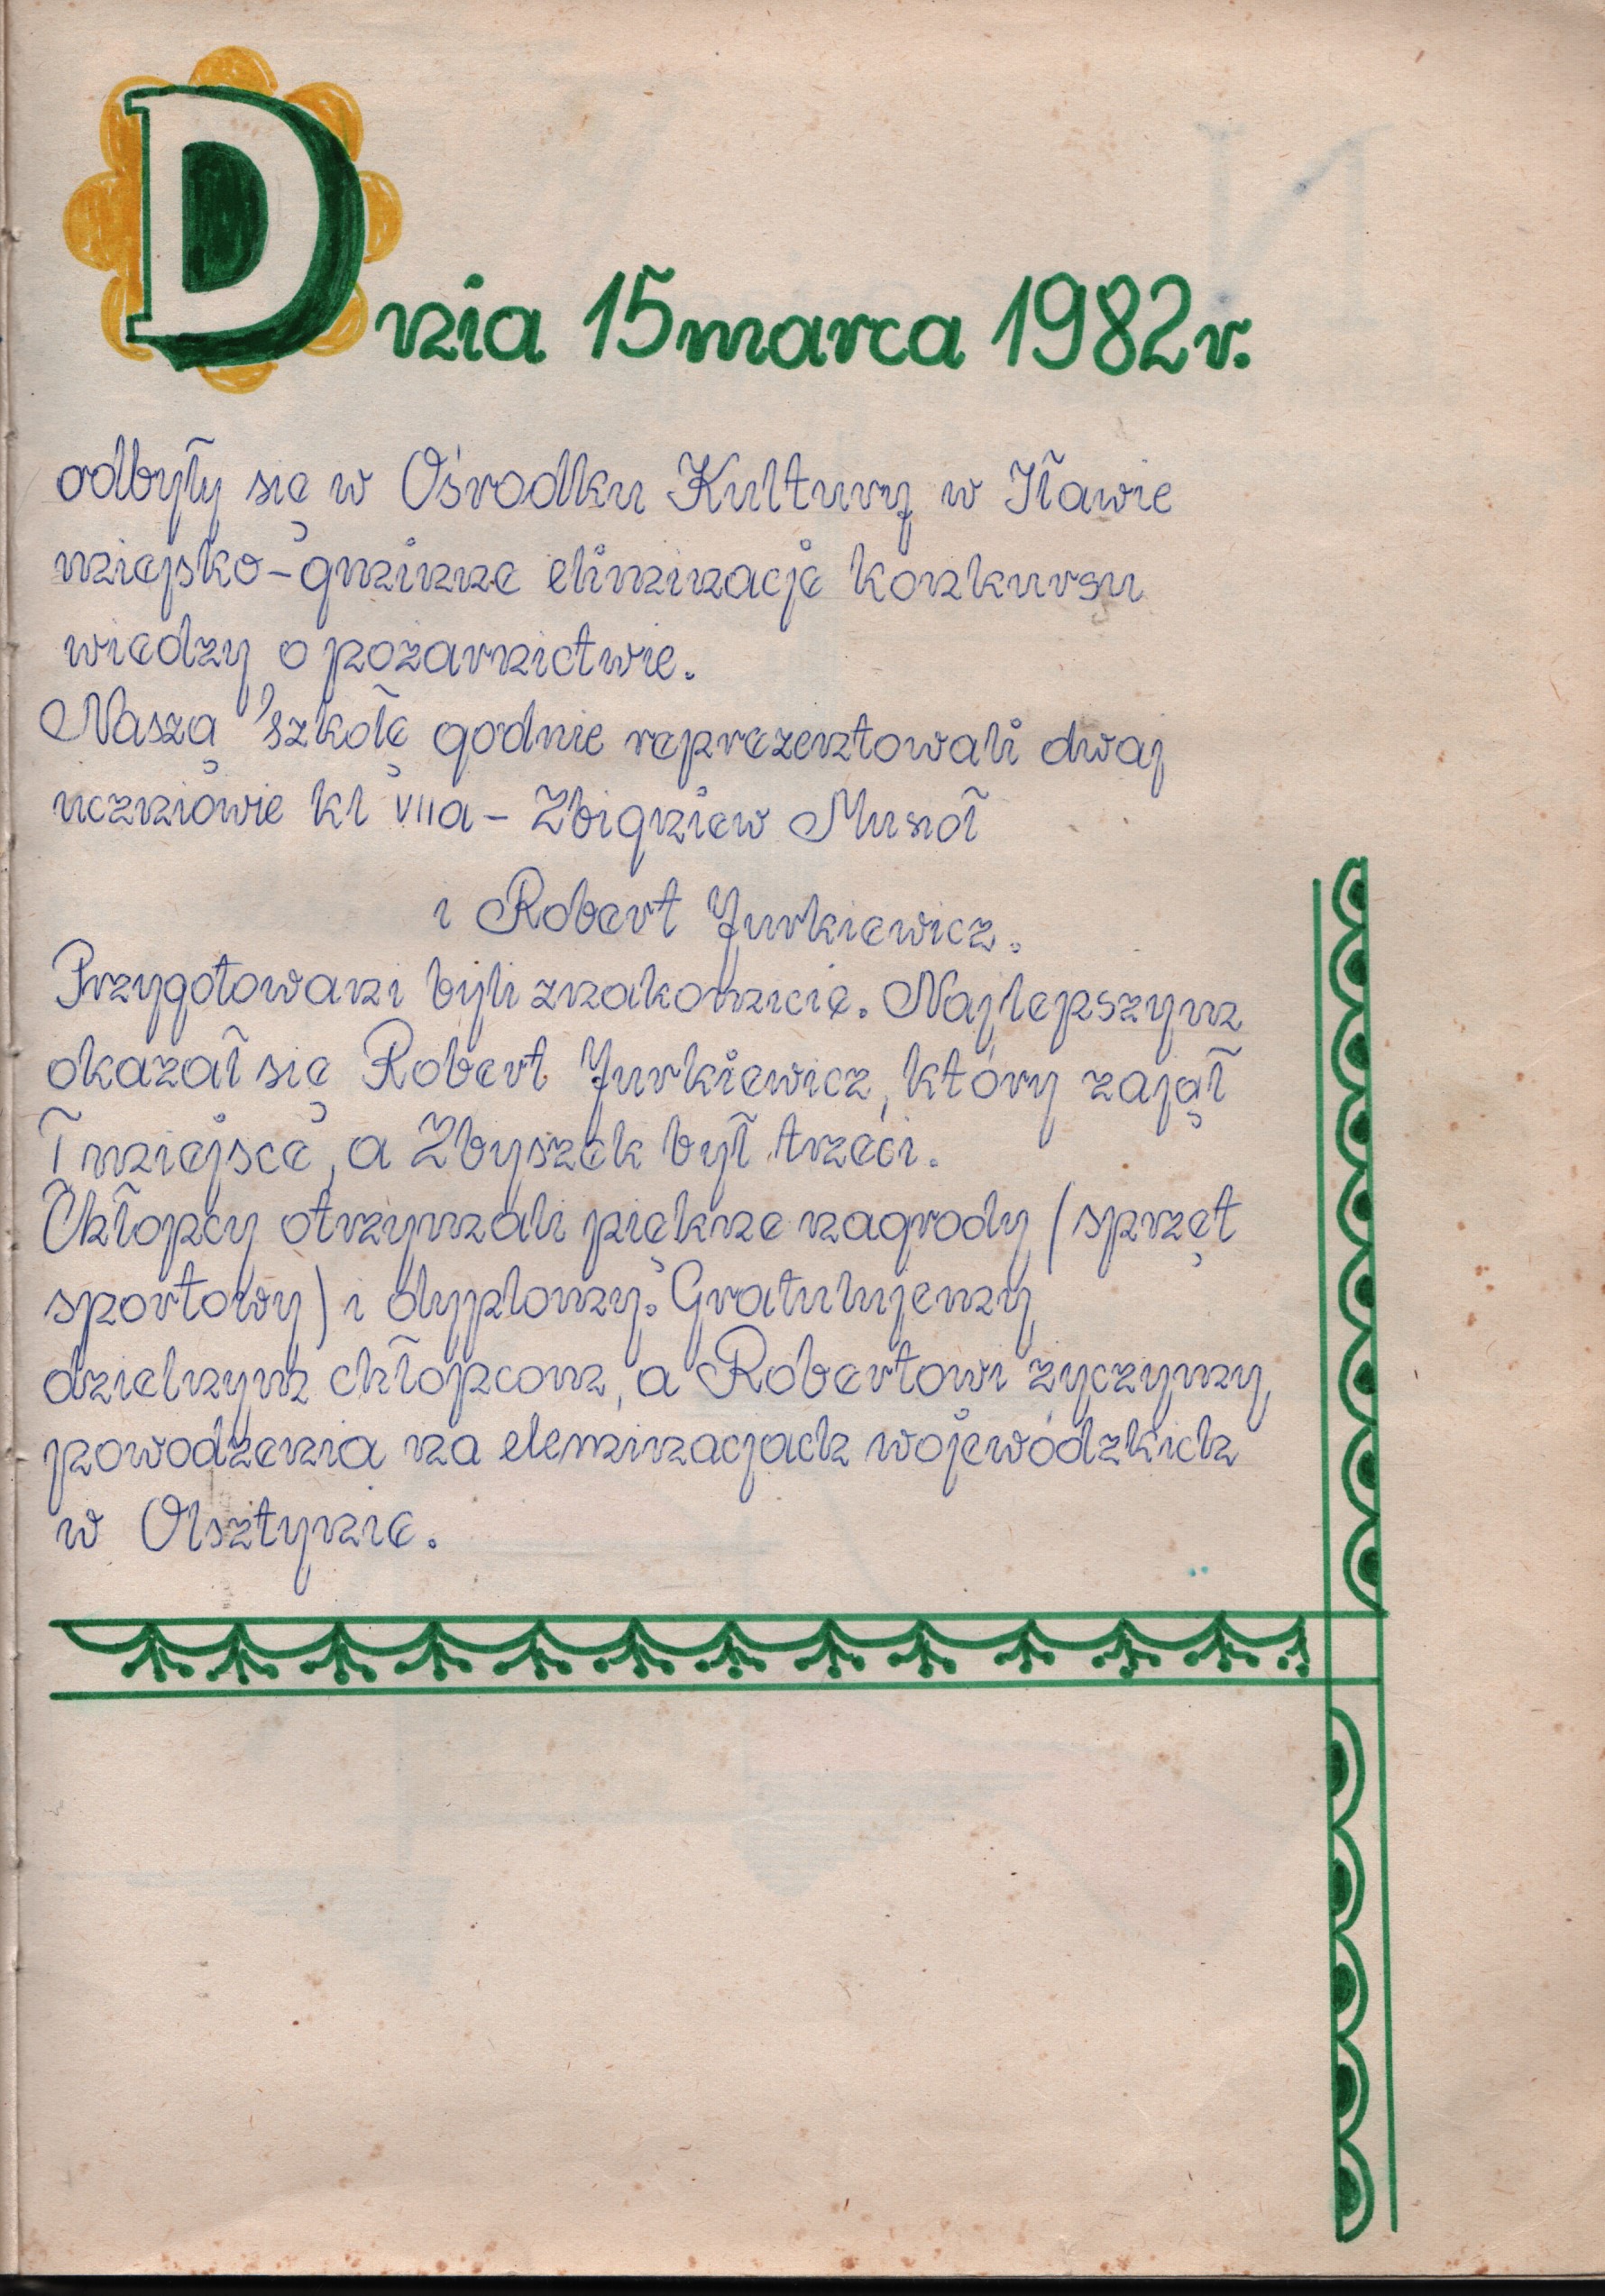 Dnia 15 marca 1982 r.
odbyły się w Ośrodku Kultury w Iławie
miejsko-gminne eliminacje konkursu
wiedzy o pożarnictwie.
Naszą szkołę godnie reprezentowali dwaj
uczniowie kl VIIa - Zbigniew Musiół
i Robert Jurkiewicz.
Przygotowani byli znakomicie. Najlepszym
okazał się Robert Jurkiewicz, który zajął
I miejsce, a Zbyszek był trzeci.
Chłopcy otrzymali piękne nagrody (sprzęt
sportowy) i dyplomy. Gratulujemy
dzielnym chłopcom, a Robertowi życzymy
powodzenia na eleminacjach wojewódzkich
w Olsztynie.